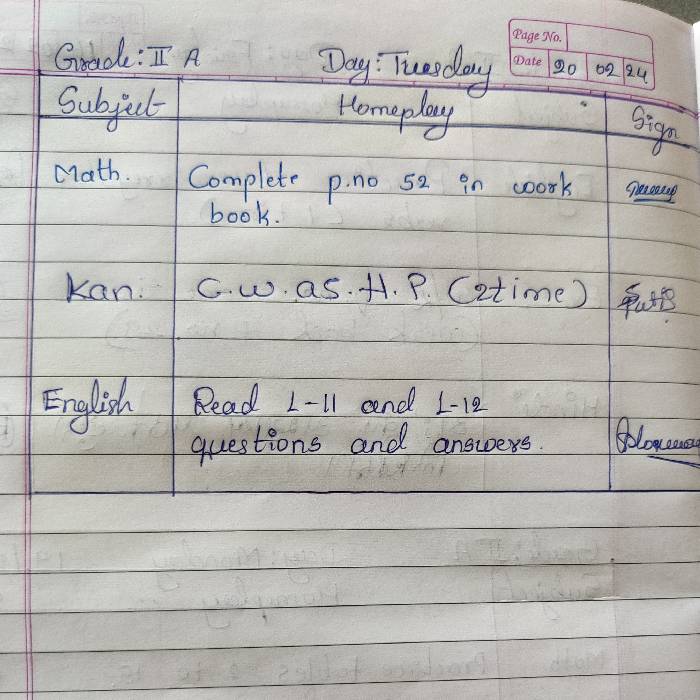 Page No.
Grade: II A Day: Tuesday Date 20 02 24
Subject Homeplay Sign
Math. Complete p.no 52 in work
book.
Kan. C.W. as. H.P. (2time)
English Read L-11 and L-12
questions and answers.